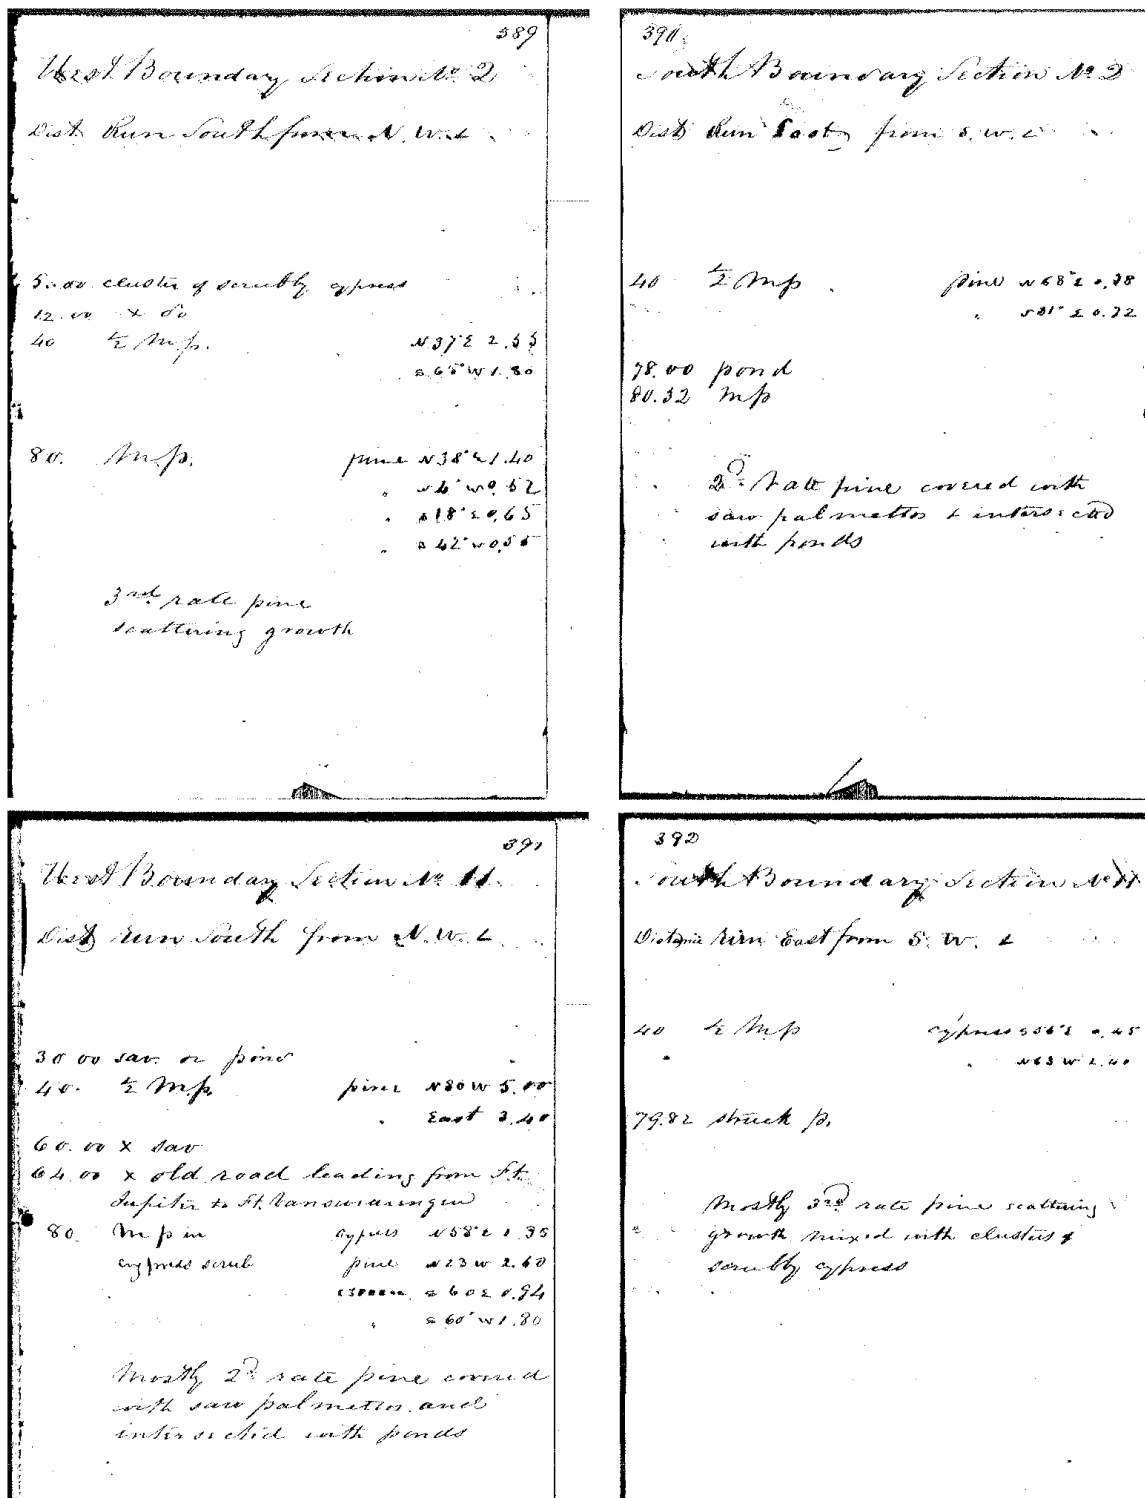 389
West Boundary Section No 2
Dist Run South from N. W. c
5.00 cluster of scrubby cypress
12.00 x do
40 ½ M.p. N 37° E 2.55
S 65° W 1.80
80. M.p. pine N 38° E 1.40
" N 4° W 0.52
" S 18° E 0.65
" S 42° W 0.55
3rd rate pine
scattering growth
390
South Boundary Section No 2
Dist Run East from S. W. c
40 ½ Mp pine N 68° E 0.38
" S 31° E 0.72
78.00 pond
80.32 Mp
2d rate pine covered with
saw palmettos & intersected
with ponds
391
West Boundary Section No 11.
Dist run South from N. W. c
30 00 sav. or pond
40. ½ M.p. pine N 80 W 5.00
" East 3.40
60.00 x sav
64.00 x old road leading from Ft.
Jupiter to Ft. Vanswearingen
80. M p in cypress N 58° E 1.35
cypress scrub pine N 23 W 2.60
S 60 E 0.94
" S 60° W 1.80
Mostly 2d rate pine covered
with saw palmettos and
intersected with ponds
392
South Boundary Section No 11
Distance run East from S. W. c
40 ½ Mp cypress S 56° E 0.45
" N 63 W 2.40
79.82 struck p.
Mostly 3rd rate pine scattering
growth mixed with clusters of
scrubby cypress